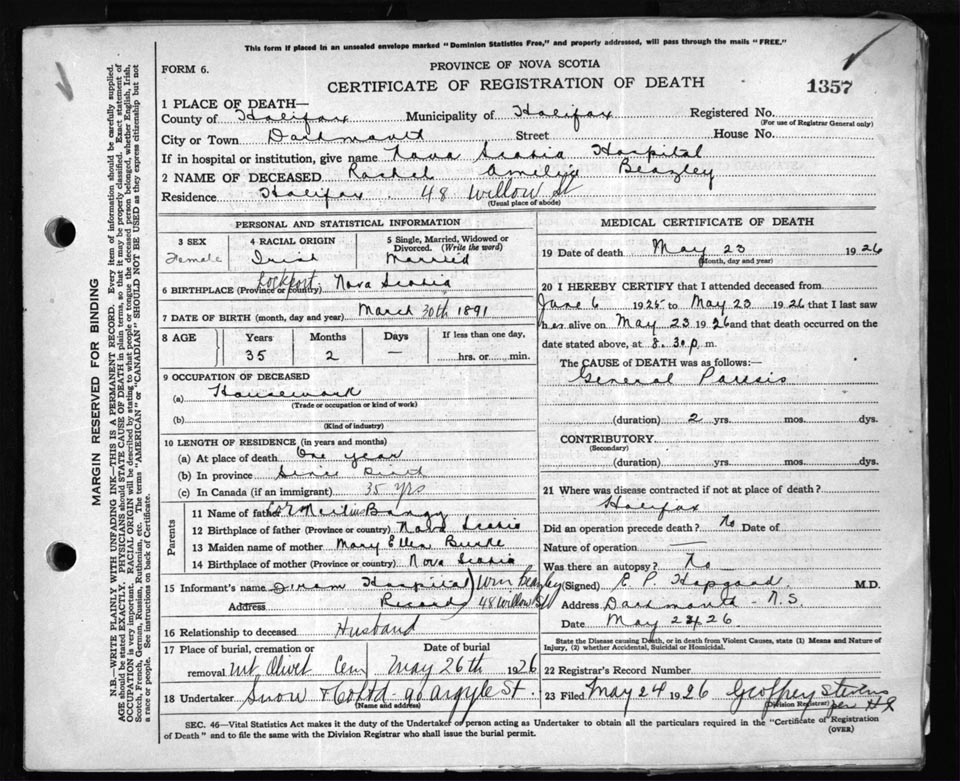 This form if placed in an unsealed envelope marked "Dominion Statistics Free," and properly addressed, will pass through the mails "FREE."
FORM 6.
PROVINCE OF NOVA SCOTIA
CERTIFICATE OF REGISTRATION OF DEATH
1357
1 PLACE OF DEATH—
County of Halifax Municipality of Halifax Registered No.
(For use of Registrar General only)
City or Town Dartmouth Street House No.
If in hospital or institution, give name Nova Scotia Hospital
2 NAME OF DECEASED Rachel Amelia Beazley
Residence Halifax. 48 Willow St
(Usual place of abode)
PERSONAL AND STATISTICAL INFORMATION
3 SEX
Female
4 RACIAL ORIGIN
Irish
5 Single, Married, Widowed or Divorced. (Write the word)
Married
6 BIRTHPLACE (Province or country) Lockport, Nova Scotia
7 DATE OF BIRTH (month, day and year) March 30th 1891
8 AGE
Years Months Days If less than one day,
35 2 — hrs. or min.
9 OCCUPATION OF DECEASED
(a) Housework
(Trade or occupation or kind of work)
(b)
(Kind of industry)
10 LENGTH OF RESIDENCE (in years and months)
(a) At place of death One year
(b) In province Since Birth
(c) In Canada (if an immigrant) 35 yrs
Parents
11 Name of father
12 Birthplace of father (Province or country) Nova Scotia
13 Maiden name of mother Mary Ellen Burke
14 Birthplace of mother (Province or country) Nova Scotia
15 Informant's name From Hospital Records) Wm Beazley
Address 48 Willow St
16 Relationship to deceased Husband
17 Place of burial, cremation or removal Mt. Olivet Cem
Date of burial May 26th 1926
18 Undertaker Snow & Co Ltd - 90 Argyle St.
(Name and address)
MEDICAL CERTIFICATE OF DEATH
19 Date of death May 23 1926
(Month, day and year)
20 I HEREBY CERTIFY that I attended deceased from
June 6 1925 to May 23 1926 that I last saw
her alive on May 23 1926 and that death occurred on
date stated above, at 8.30 p. m.
The CAUSE OF DEATH was as follows:—
General Paresis
(duration) 2 yrs. mos. dys.
CONTRIBUTORY
(Secondary)
(duration) yrs. mos. dys.
21 Where was disease contracted if not at place of death?
Halifax
Did an operation precede death? No Date of
Nature of operation —
Was there an autopsy? No
(Signed) E. P. Hopgood M.D.
Address Dartmouth - N.S.
Date May 24 26
State the Disease causing Death, or in death from Violent Causes, state (1) Means and Nature of Injury, (2) whether Accidental, Suicidal or Homicidal.
22 Registrar's Record Number
23 Filed May 24 1926 Geoffrey Stevens
(Division Registrar) per
SEC. 46—Vital Statistics Act makes it the duty of the Undertaker or person acting as Undertaker to obtain all the particulars required in the "Certificate of Registration
of Death" and to file the same with the Division Registrar who shall issue the burial permit.
(OVER)
MARGIN RESERVED FOR BINDING
N.B—WRITE PLAINLY WITH UNFADING INK—THIS IS A PERMANENT RECORD. Every item of information should be carefully supplied.
AGE should be stated EXACTLY. PHYSICIANS should STATE CAUSE OF DEATH in plain terms, so that it may be properly classified. Exact statement of
OCCUPATION is very important. RACIAL ORIGIN will be described by stating to what people or tongue the deceased person belonged, whether English, Irish,
Scotch, French, German, Russian, Ruthenian, etc. The terms "AMERICAN" or "CANADIAN" SHOULD NOT BE USED as they express citizenship but not
a race or people. See instructions on back of Certificate.